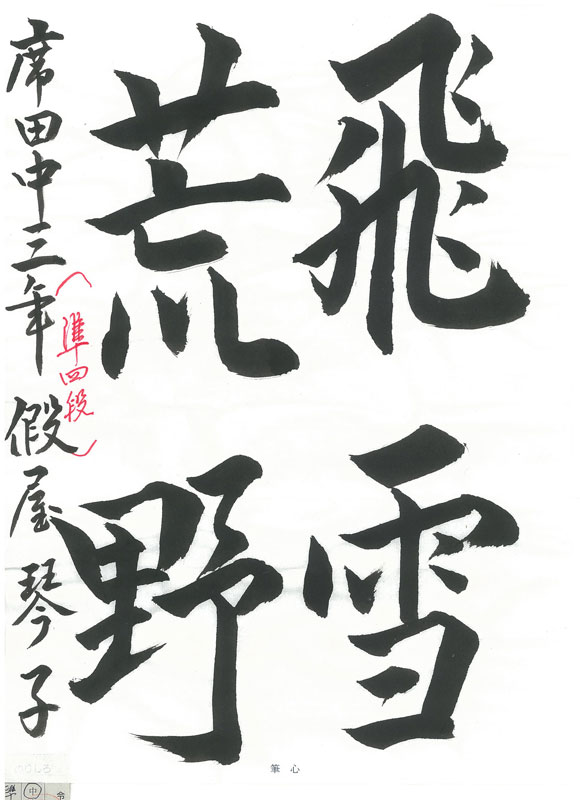 飛雪
荒野
席田中三年 假屋琴子
（準四段）
心筆
0063
準 中